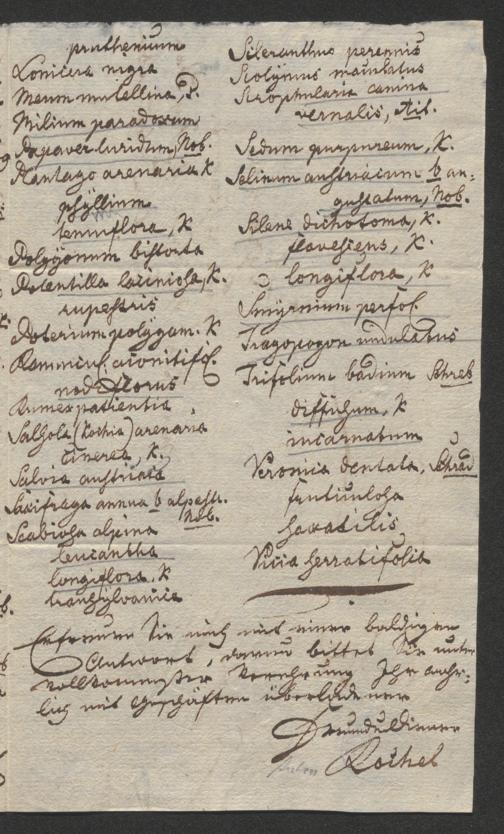 pruthenium
Lonicera nigra
Meum mutellina, P.
Milium paradoxum
Papaver luridum, Nob.
Plantago arenaria K
psyllium
tenuiflora, K
Polygonum bistorta
Potentilla laciniosa, K.
rupestris
Poterium polygam. K
Ranuncul. aconitifol.
nodiflorus
Rumex patientia
Salsola (Kochia) arenaria
cinerea, K.
Salvia austriaca
Saxifraga annua b alpestr.
Nob.
Scabiosa alpina
leucantha
longiflora, K
transsylvanica
Scleranthus perennis
Scolymus maculatus
Scrophularia canina
vernalis, Ait.
Sedum purpureum, K.
Selinum austriacum b an-
gustatum, Nob.
Silene dichotoma, K.
flavescens, K.
longiflora, K
Smyrnium perfol.
Tragopogon undulatus
Trifolium badium Schreb
diffusum, K
incarnatum
Veronica dentata, Schrad
fruticulosa
saxatilis
Vicia serratifolia
Erfreuen Sie mich mit einer baldigen
Antwort, darum bittet Sie unter
vollkommenster Verehrung Ihr
lich mit Geschäften überladener
Freund u Diener
Rochel